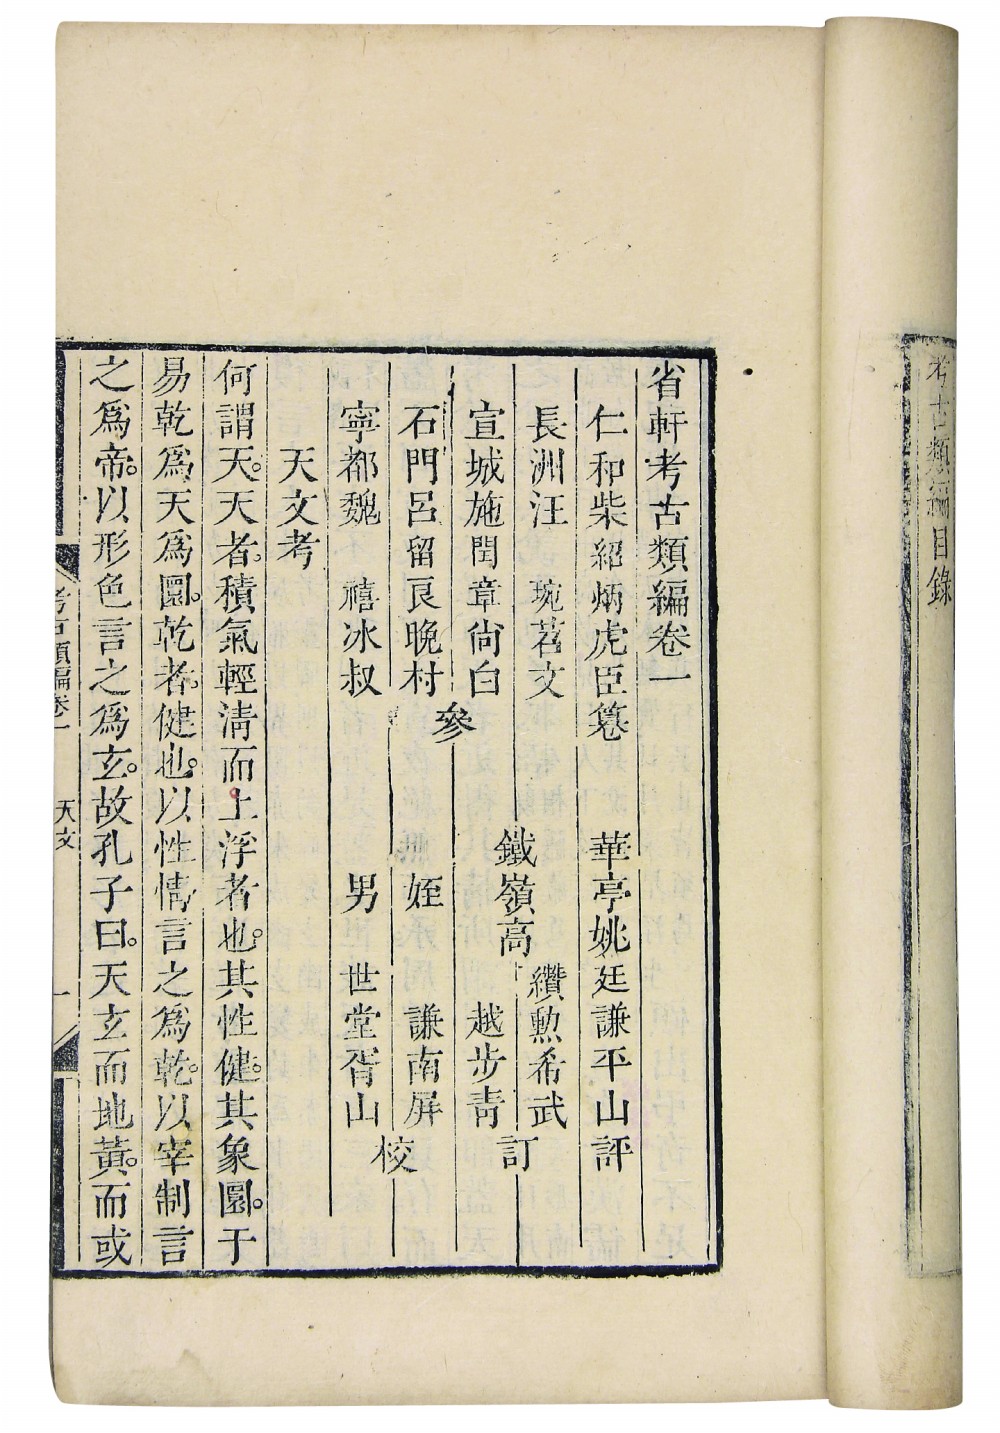 考古類編目錄
省軒考古類編卷一
仁和柴紹炳虎臣纂 華亭姚廷謙平山評
長洲汪 琬苕文
宣城施閏章尙白
石門呂留良晚村
寧都魏 禧冰叔
參
鐵嶺高
纘勲希武
越步青
訂
姪 謙南屏
男 世堂胥山
校
天文考
何謂天。天者。積氣輕淸而上浮者也。其性健。其象圜。于
易乾爲天爲圜。乾者。健也。以性情言之爲乾。以宰制言
之爲帝。以形色言之爲玄。故孔子曰。天玄而地黃。而或
考古類編卷一 天文 一